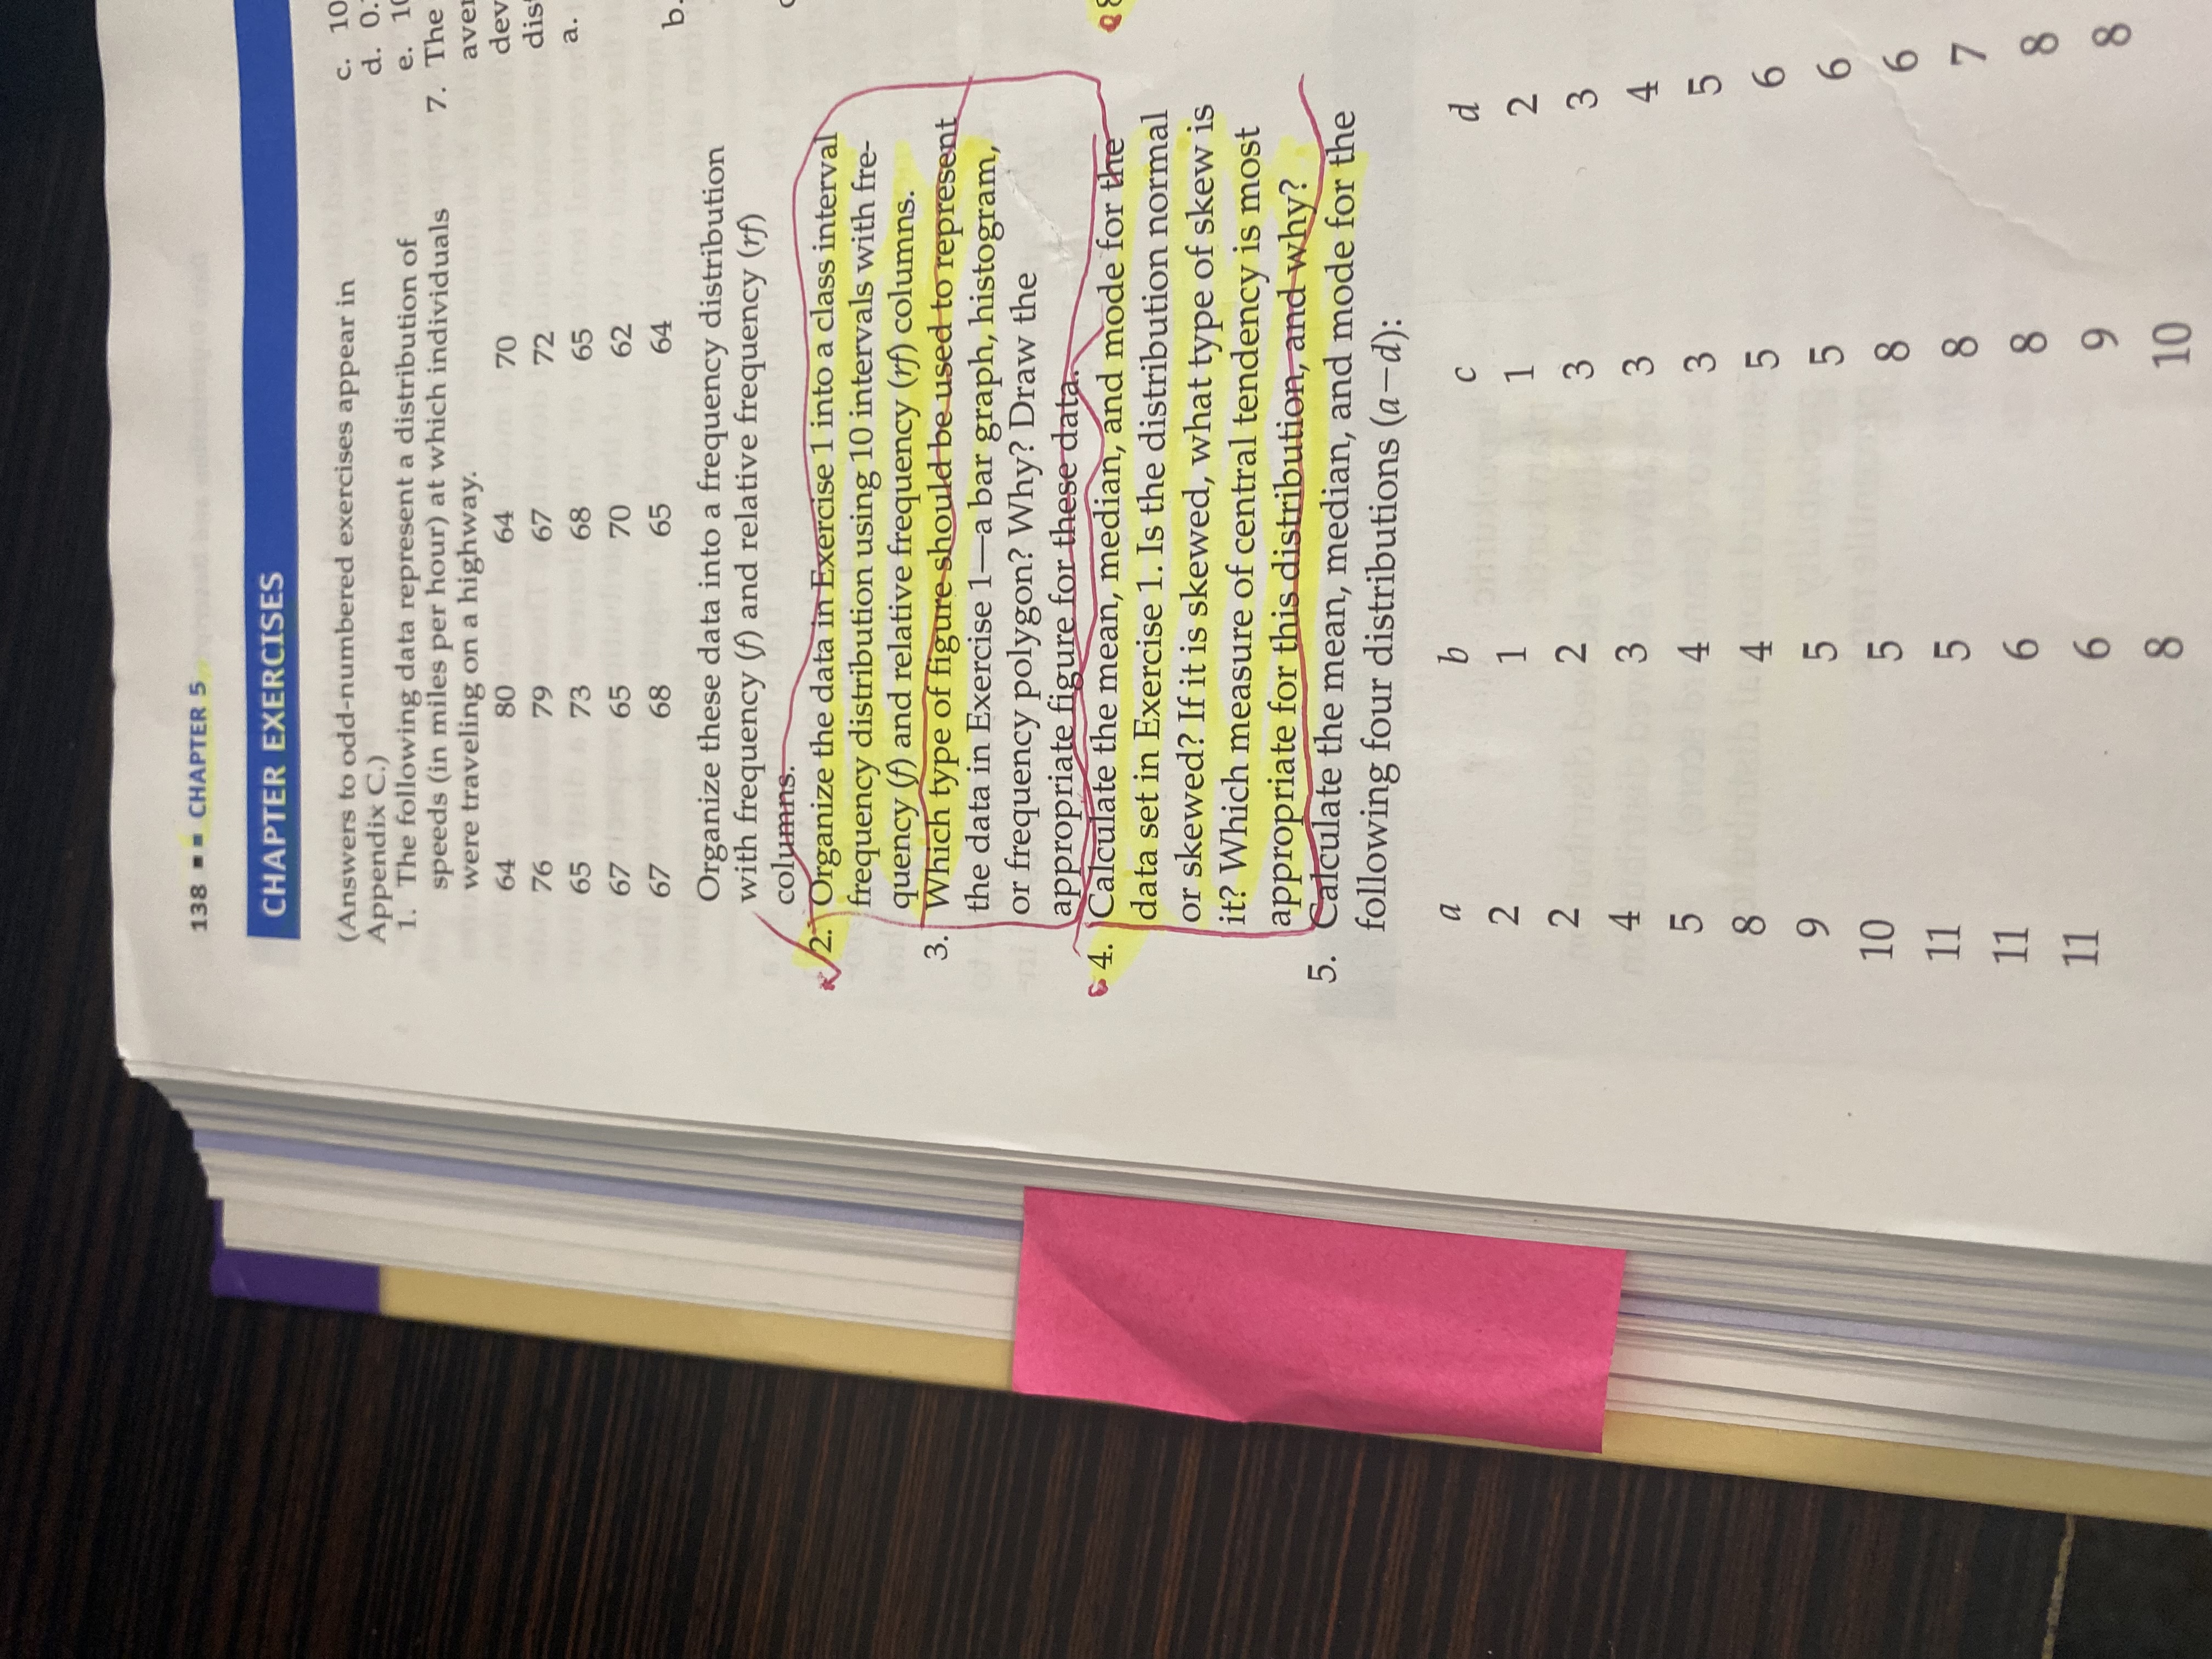 138 ■ ■ CHAPTER 5
CHAPTER EXERCISES
(Answers to odd-numbered exercises appear in
Appendix C.)
1. The following data represent a distribution of
speeds (in miles per hour) at which individuals
were traveling on a highway.
64 80 64 70
76 79 67 72
65 73 68 65
67 65 70 62
67 68 65 64
Organize these data into a frequency distribution
with frequency (f) and relative frequency (rf)
columns.
2. Organize the data in Exercise 1 into a class interval
frequency distribution using 10 intervals with fre-
quency (f) and relative frequency (rf) columns.
3. Which type of figure should be used to represent
the data in Exercise 1—a bar graph, histogram,
or frequency polygon? Why? Draw the
appropriate figure for these data.
4. Calculate the mean, median, and mode for the
data set in Exercise 1. Is the distribution normal
or skewed? If it is skewed, what type of skew is
it? Which measure of central tendency is most
appropriate for this distribution, and why?
5. Calculate the mean, median, and mode for the
following four distributions (a–d):
a b c d
2 1 1 2
2 2 3 3
4 3 3 4
5 4 3 5
8 4 5 6
9 5 5 6
10 5 8 6
11 5 8 7
11 6 8 8
11 6 9 8
8 10
c. 10
d. 0.
e. 10
7. The
a.
b.